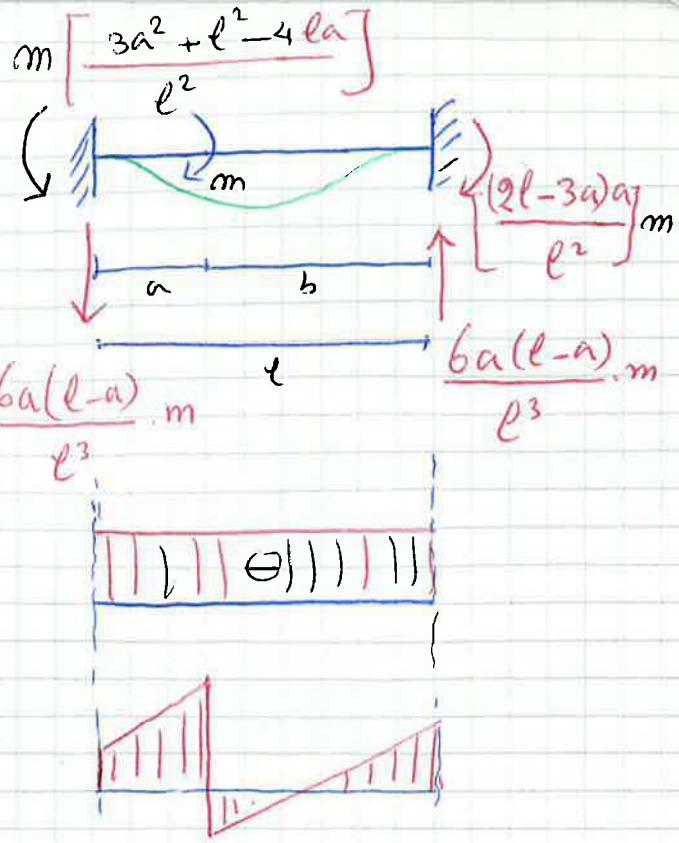 m [ 3a² + l² - 4la / l² ]
m
[ (2l - 3a)a / l² ] m
a b
l
6a(l-a) / l³ . m
6a(l-a) / l³ . m
⊖